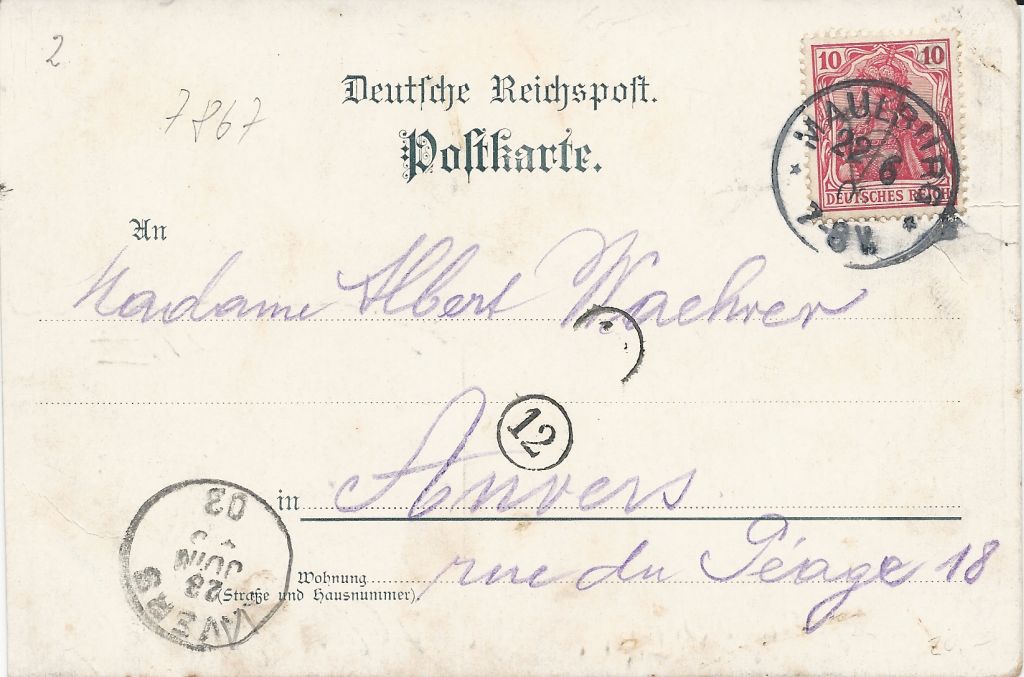 2
7867
Deutsche Reichspost.
Postkarte.
10 10
DEUTSCHES REICH
MAULBURG
22/6
7-8V.
An
Madame Albert Waehrer
12
in Anvers
Wohnung
(Straße und Hausnummer).
rue du Péage 18
ANVERS
23
JUIN
03
20.-